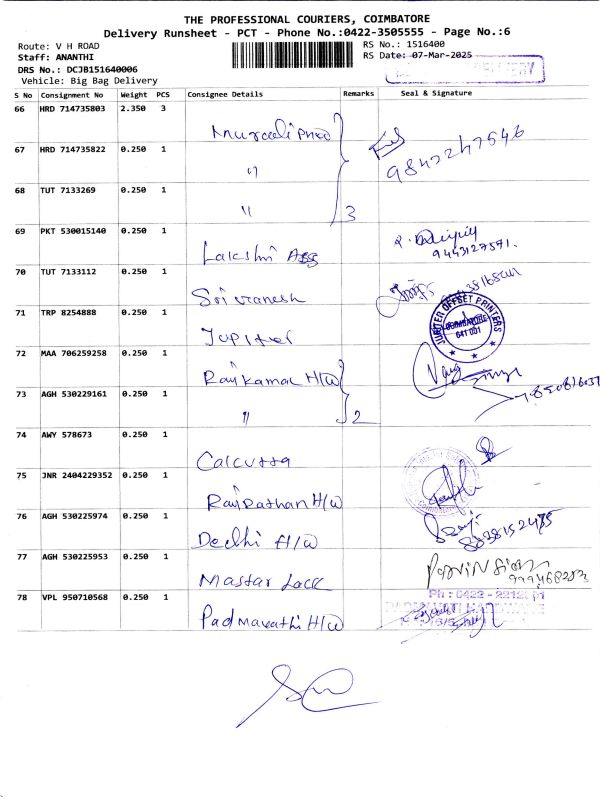 THE PROFESSIONAL COURIERS, COIMBATORE
Delivery Runsheet - PCT - Phone No.:0422-3505555 - Page No.:6
Route: V H ROAD
RS No.: 1516400
Staff: ANANTHI
RS Date: 07-Mar-2025
DRS No.: DCJB151640006
Vehicle: Big Bag Delivery
S No Consignment No Weight PCS Consignee Details Remarks Seal & Signature
66 HRD 714735803 2.350 3
9842247546
67 HRD 714735822 0.250 1 "
68 TUT 7133269 0.250 1 " 3
69 PKT 530015140 0.250 1 Lakshmi
9443127571.
70 TUT 7133112 0.250 1 Sri Vranesh
71 TRP 8254888 0.250 1 Jupiter
JUPITER OFFSET PRINTERS
COIMBATORE
641 001
72 MAA 706259258 0.250 1 Raj Kamal H/W
73 AGH 530229161 0.250 1 " 2
74 AWY 578673 0.250 1 Calcutta
75 JNR 2404229352 0.250 1 Rajasthan H/W
76 AGH 530225974 0.250 1 Deelhi H/W
77 AGH 530225953 0.250 1 Mastar Lock
78 VPL 950710568 0.250 1 Padmavathi H/W